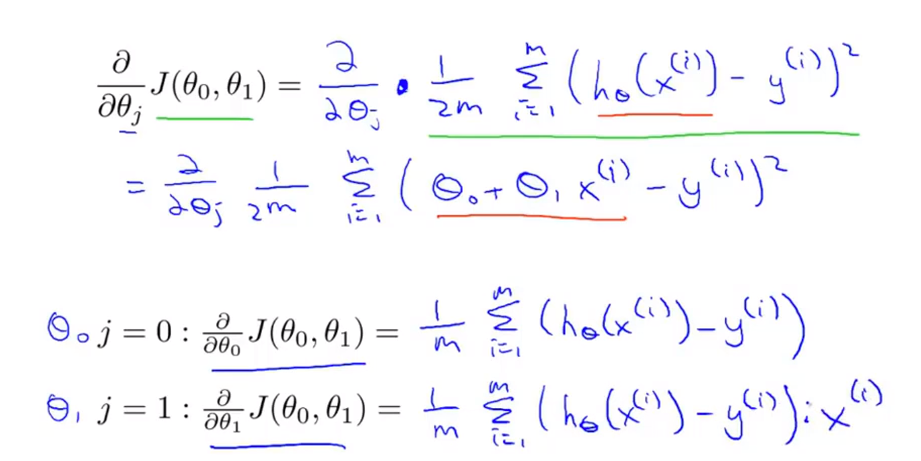 ∂/∂θⱼ J(θ₀, θ₁) = ∂/∂θⱼ · 1/2m ∑ᵢ₌₁ᵐ (hθ(x⁽ⁱ⁾) − y⁽ⁱ⁾)²
= ∂/∂θⱼ 1/2m ∑ᵢ₌₁ᵐ (θ₀ + θ₁ x⁽ⁱ⁾ − y⁽ⁱ⁾)²
θ₀ j = 0 : ∂/∂θ₀ J(θ₀, θ₁) = 1/m ∑ᵢ₌₁ᵐ (hθ(x⁽ⁱ⁾) − y⁽ⁱ⁾)
θ₁ j = 1 : ∂/∂θ₁ J(θ₀, θ₁) = 1/m ∑ᵢ₌₁ᵐ (hθ(x⁽ⁱ⁾) − y⁽ⁱ⁾) · x⁽ⁱ⁾